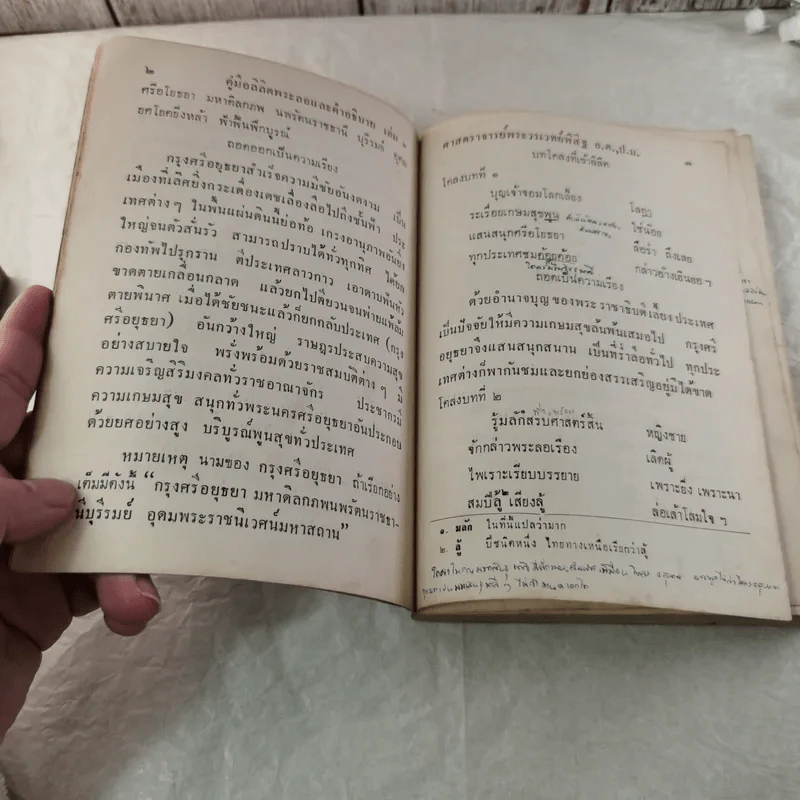 ๒
คู่มือลิลิตพระลอและคำอธิบาย เล่ม ๑
ศรีอโยธยา มหาดิลกภพ นพรัตนราชธานี บุรีรมย์ อุดม
ยศโยคยิ่งหล้า ฟ้าฟื้นฟึกบูรณ์
ถอดออกเป็นความเรียง
กรุงศรีอยุธยาสำเร็จความมีชัยอันงดงาม เป็น
เมืองที่เลิศยิ่งกระเดื่องเดชเลื่องลือไปถึงชั้นฟ้า ประ
เทศต่าง ๆ ในพื้นแผ่นดินนี้ย่อท้อ เกรงอานุภาพอันยิ่ง
ใหญ่จนตัวสั่นรัว สามารถปราบได้ทั่วทุกทิศ ได้ยก
กองทัพไปรุกราน ตีประเทศลาวกาว เอาดาบฟันหัว
ขาดตายเกลื่อนกลาด แล้วยกไปตียวนจนพ่ายแพ้ล้ม
ตายพินาศ เมื่อได้ชัยชนะแล้วก็ยกกลับประเทศ (กรุง
ศรีอยุธยา) อันกว้างใหญ่ ราษฎรประสบความสุข
อย่างสบายใจ พรั่งพร้อมด้วยราชสมบัติต่าง ๆ มี
ความเจริญสิริมงคลทั่วราชอาณาจักร ประชากรมี
ความเกษมสุข สนุกทั่วพระนครศรีอยุธยาอันประกอบ
ด้วยยศอย่างสูง บริบูรณ์พูนสุขทั่วประเทศ
หมายเหตุ นามของ กรุงศรีอยุธยา ถ้าเรียกอย่าง
เต็มมีดังนี้ “กรุงศรีอยุธยา มหาดิลกภพนพรัตนราชธา-
นีบุรีรมย์ อุดมพระราชนิเวศน์มหาสถาน”
ศาสตราจารย์พระวรเวทย์พิสิฐ อ.ด.,ป.ม. ๓
บทโคลงที่เข้าลิลิต
โคลงบทที่ ๑
บุญเจ้าจอมโลกเลี้ยง โลกา
ระเรื่อยเกษมสุขพูน ใช่น้อย
แสนสนุกศรีอโยธยา ฤๅร่ำ ถึงเลย
ทุกประเทศชมค้อยค้อย กล่าวอ้างเยินยอ ๆ
ถอดเป็นความเรียง
ด้วยอำนาจบุญ ของพระราชาธิบดีเลี้ยงประเทศ
เป็นปัจจัยให้มีความเกษมสุขล้นพ้นเสมอไป กรุงศรี
อยุธยาจึงแสนสนุกสนาน เป็นที่ร่ำลือทั่วไป ทุกประ
เทศต่างก็พากันชมและยกย่องสรรเสริญอยู่มิได้ขาด
โคลงบทที่ ๒
รู้มลักสรบศาสตร์สิ้น หญิงชาย
จักกล่าวพระลอเรือง เลิศผู้
ไพเราะเรียบบรรยาย เพราะยิ่ง เพราะนา
สมปี่ลู้๒ เสียงลู้ ล่อเล้าโลมใจ ๆ
๑. มลัก ในที่นี้แปลว่ามาก
๒. ลู้ ปี่ชนิดหนึ่ง ไทยทางเหนือเรียกว่าลู้